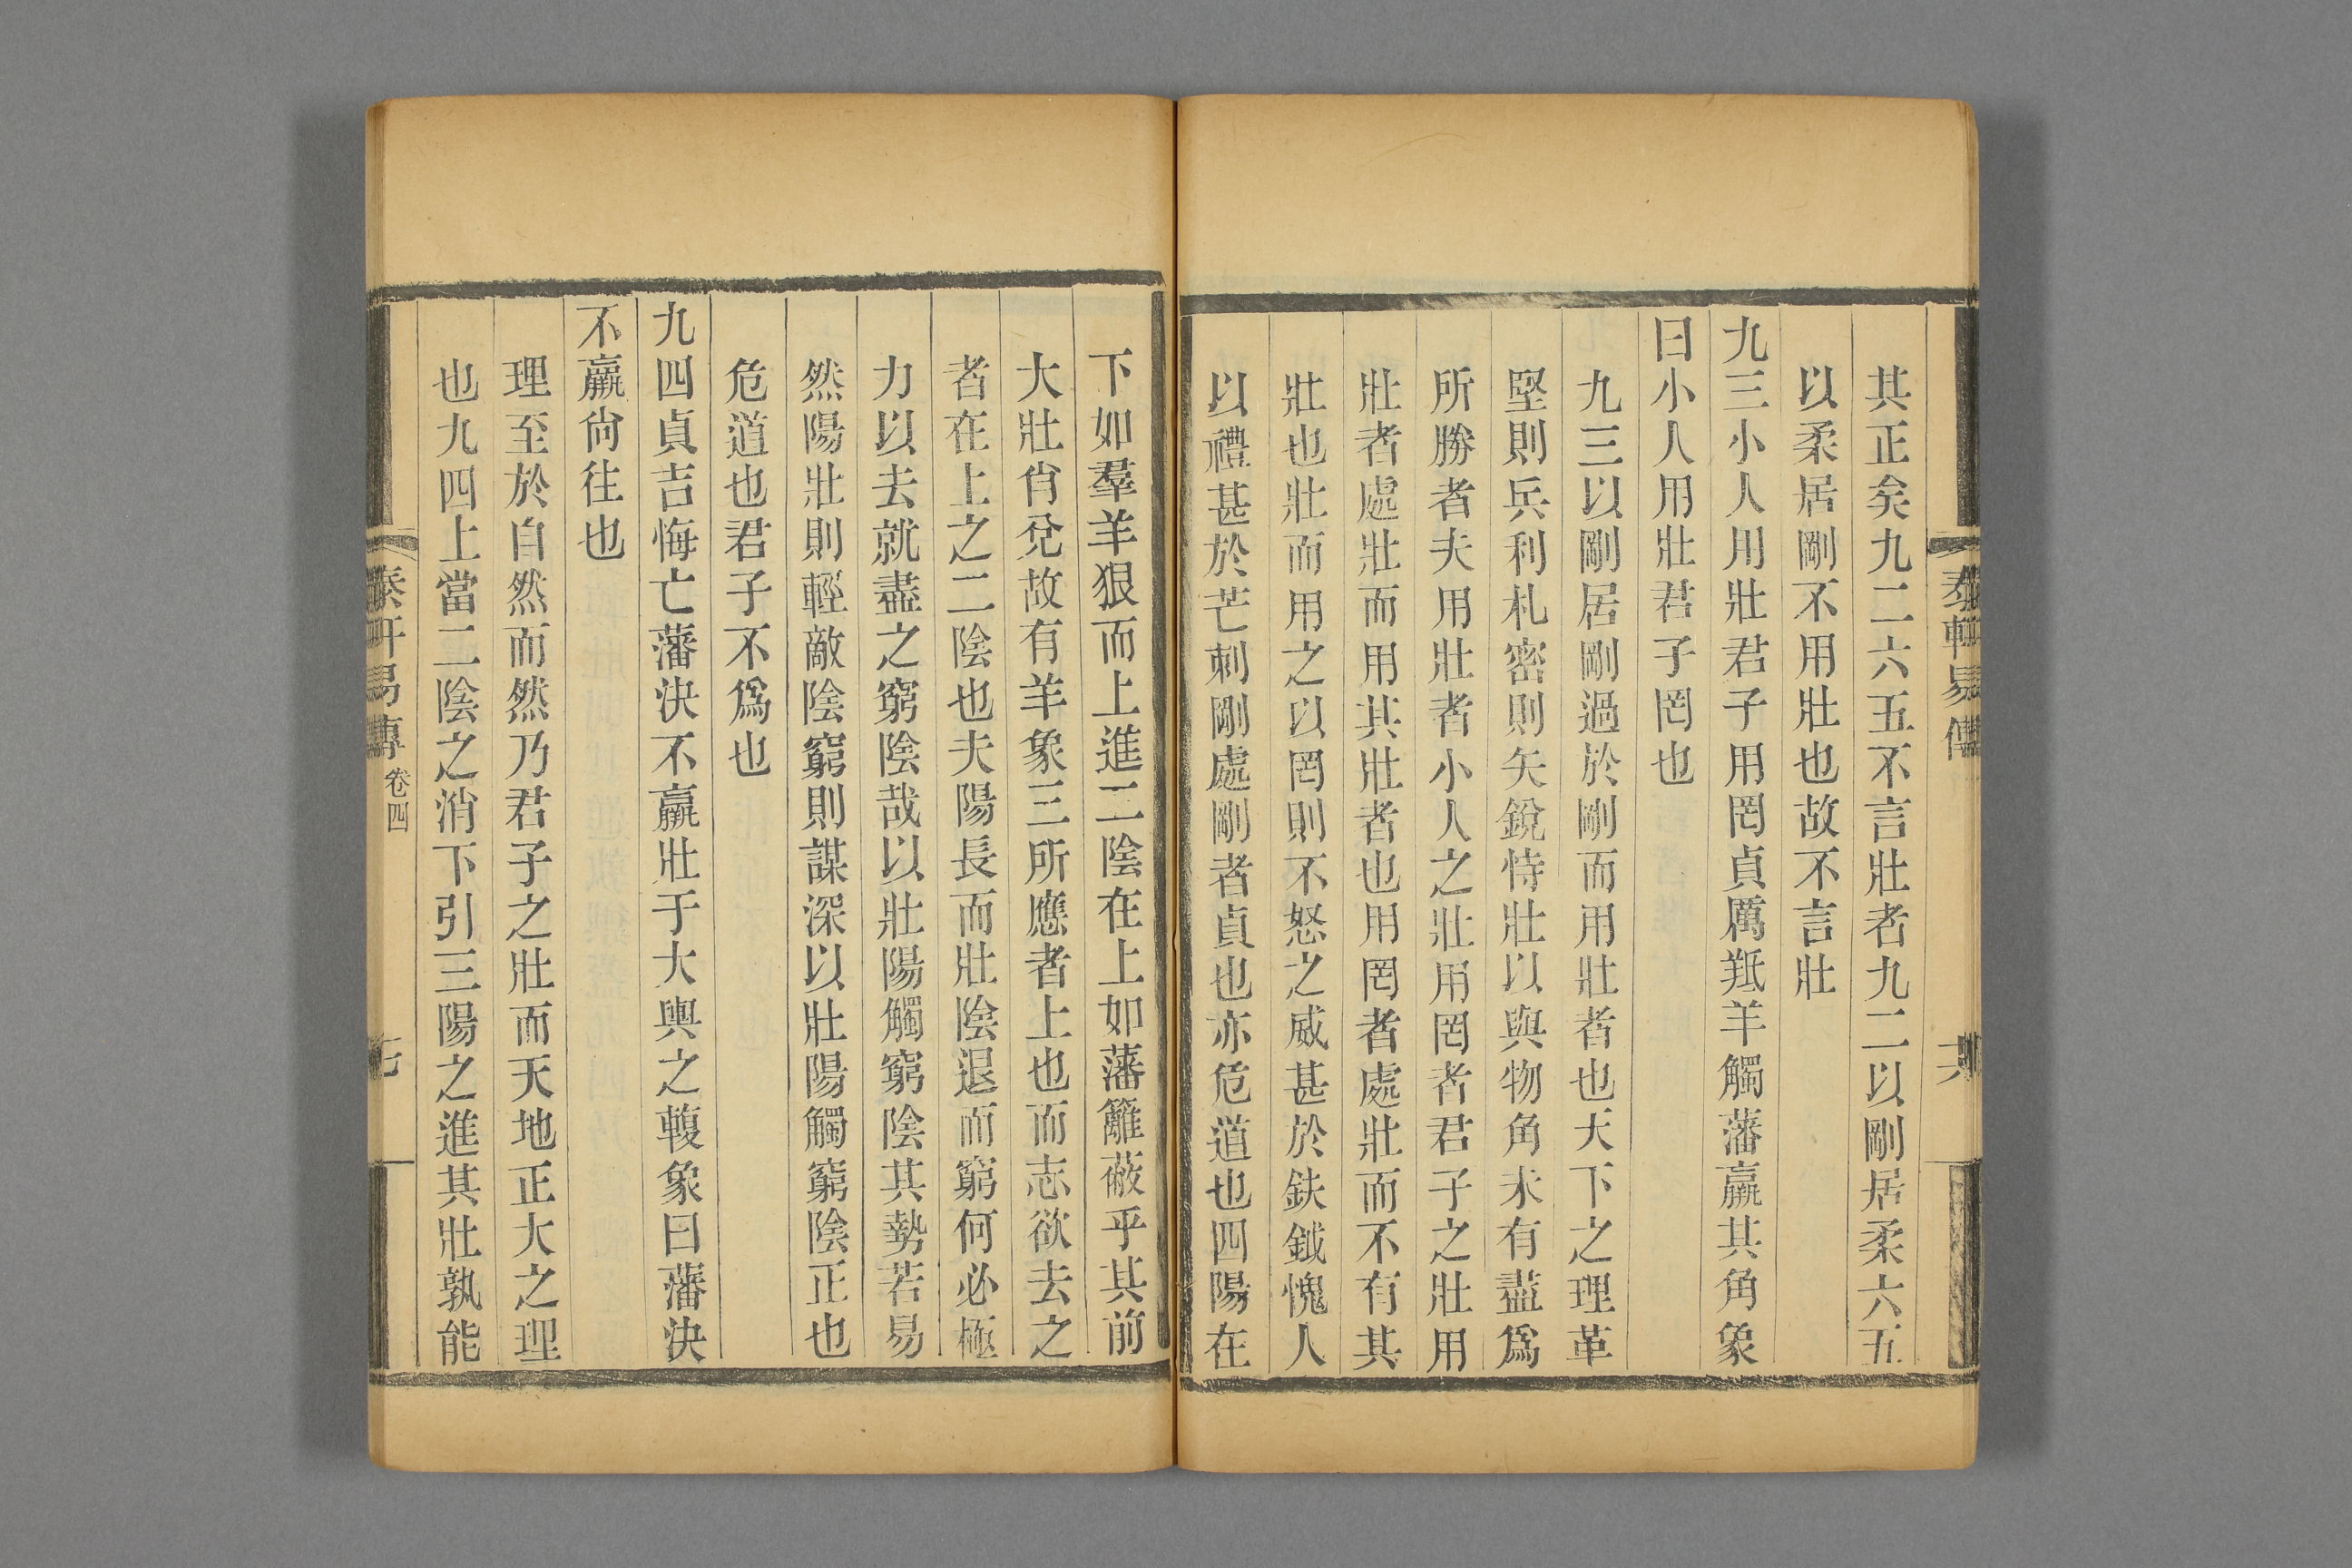 其正矣九二六五不言壯者九二以剛居柔六五
以柔居剛不用壯也故不言壯
九三小人用壯君子用罔貞厲羝羊觸藩羸其角象
曰小人用壯君子罔也
九三以剛居剛過於剛而用壯者也天下之理革
堅則兵利札密則矢銳恃壯以與物角未有盡爲
所勝者夫用壯者小人之壯用罔者君子之壯用
壯者處壯而用其壯者也用罔者處壯而不有其
壯也壯而用之以罔則不怒之威甚於鈇鉞愧人
以禮甚於芒刺剛處剛者貞也亦危道也四陽在
下如羣羊狠而上進二陰在上如藩籬蔽乎其前
大壯肖兌故有羊象三所應者上也而志欲去之
者在上之二陰也夫陽長而壯陰退而窮何必極
力以去就盡之窮陰哉以壯陽觸窮陰其勢若易
然陽壯則輕敵陰窮則謀深以壯陽觸窮陰正也
危道也君子不爲也
九四貞吉悔亡藩決不羸壯于大輿之輹象曰藩決
不羸尙往也
理至於自然而然乃君子之壯而天地正大之理
也九四上當二陰之消下引三陽之進其壯孰能
泰軒易傳 卷四